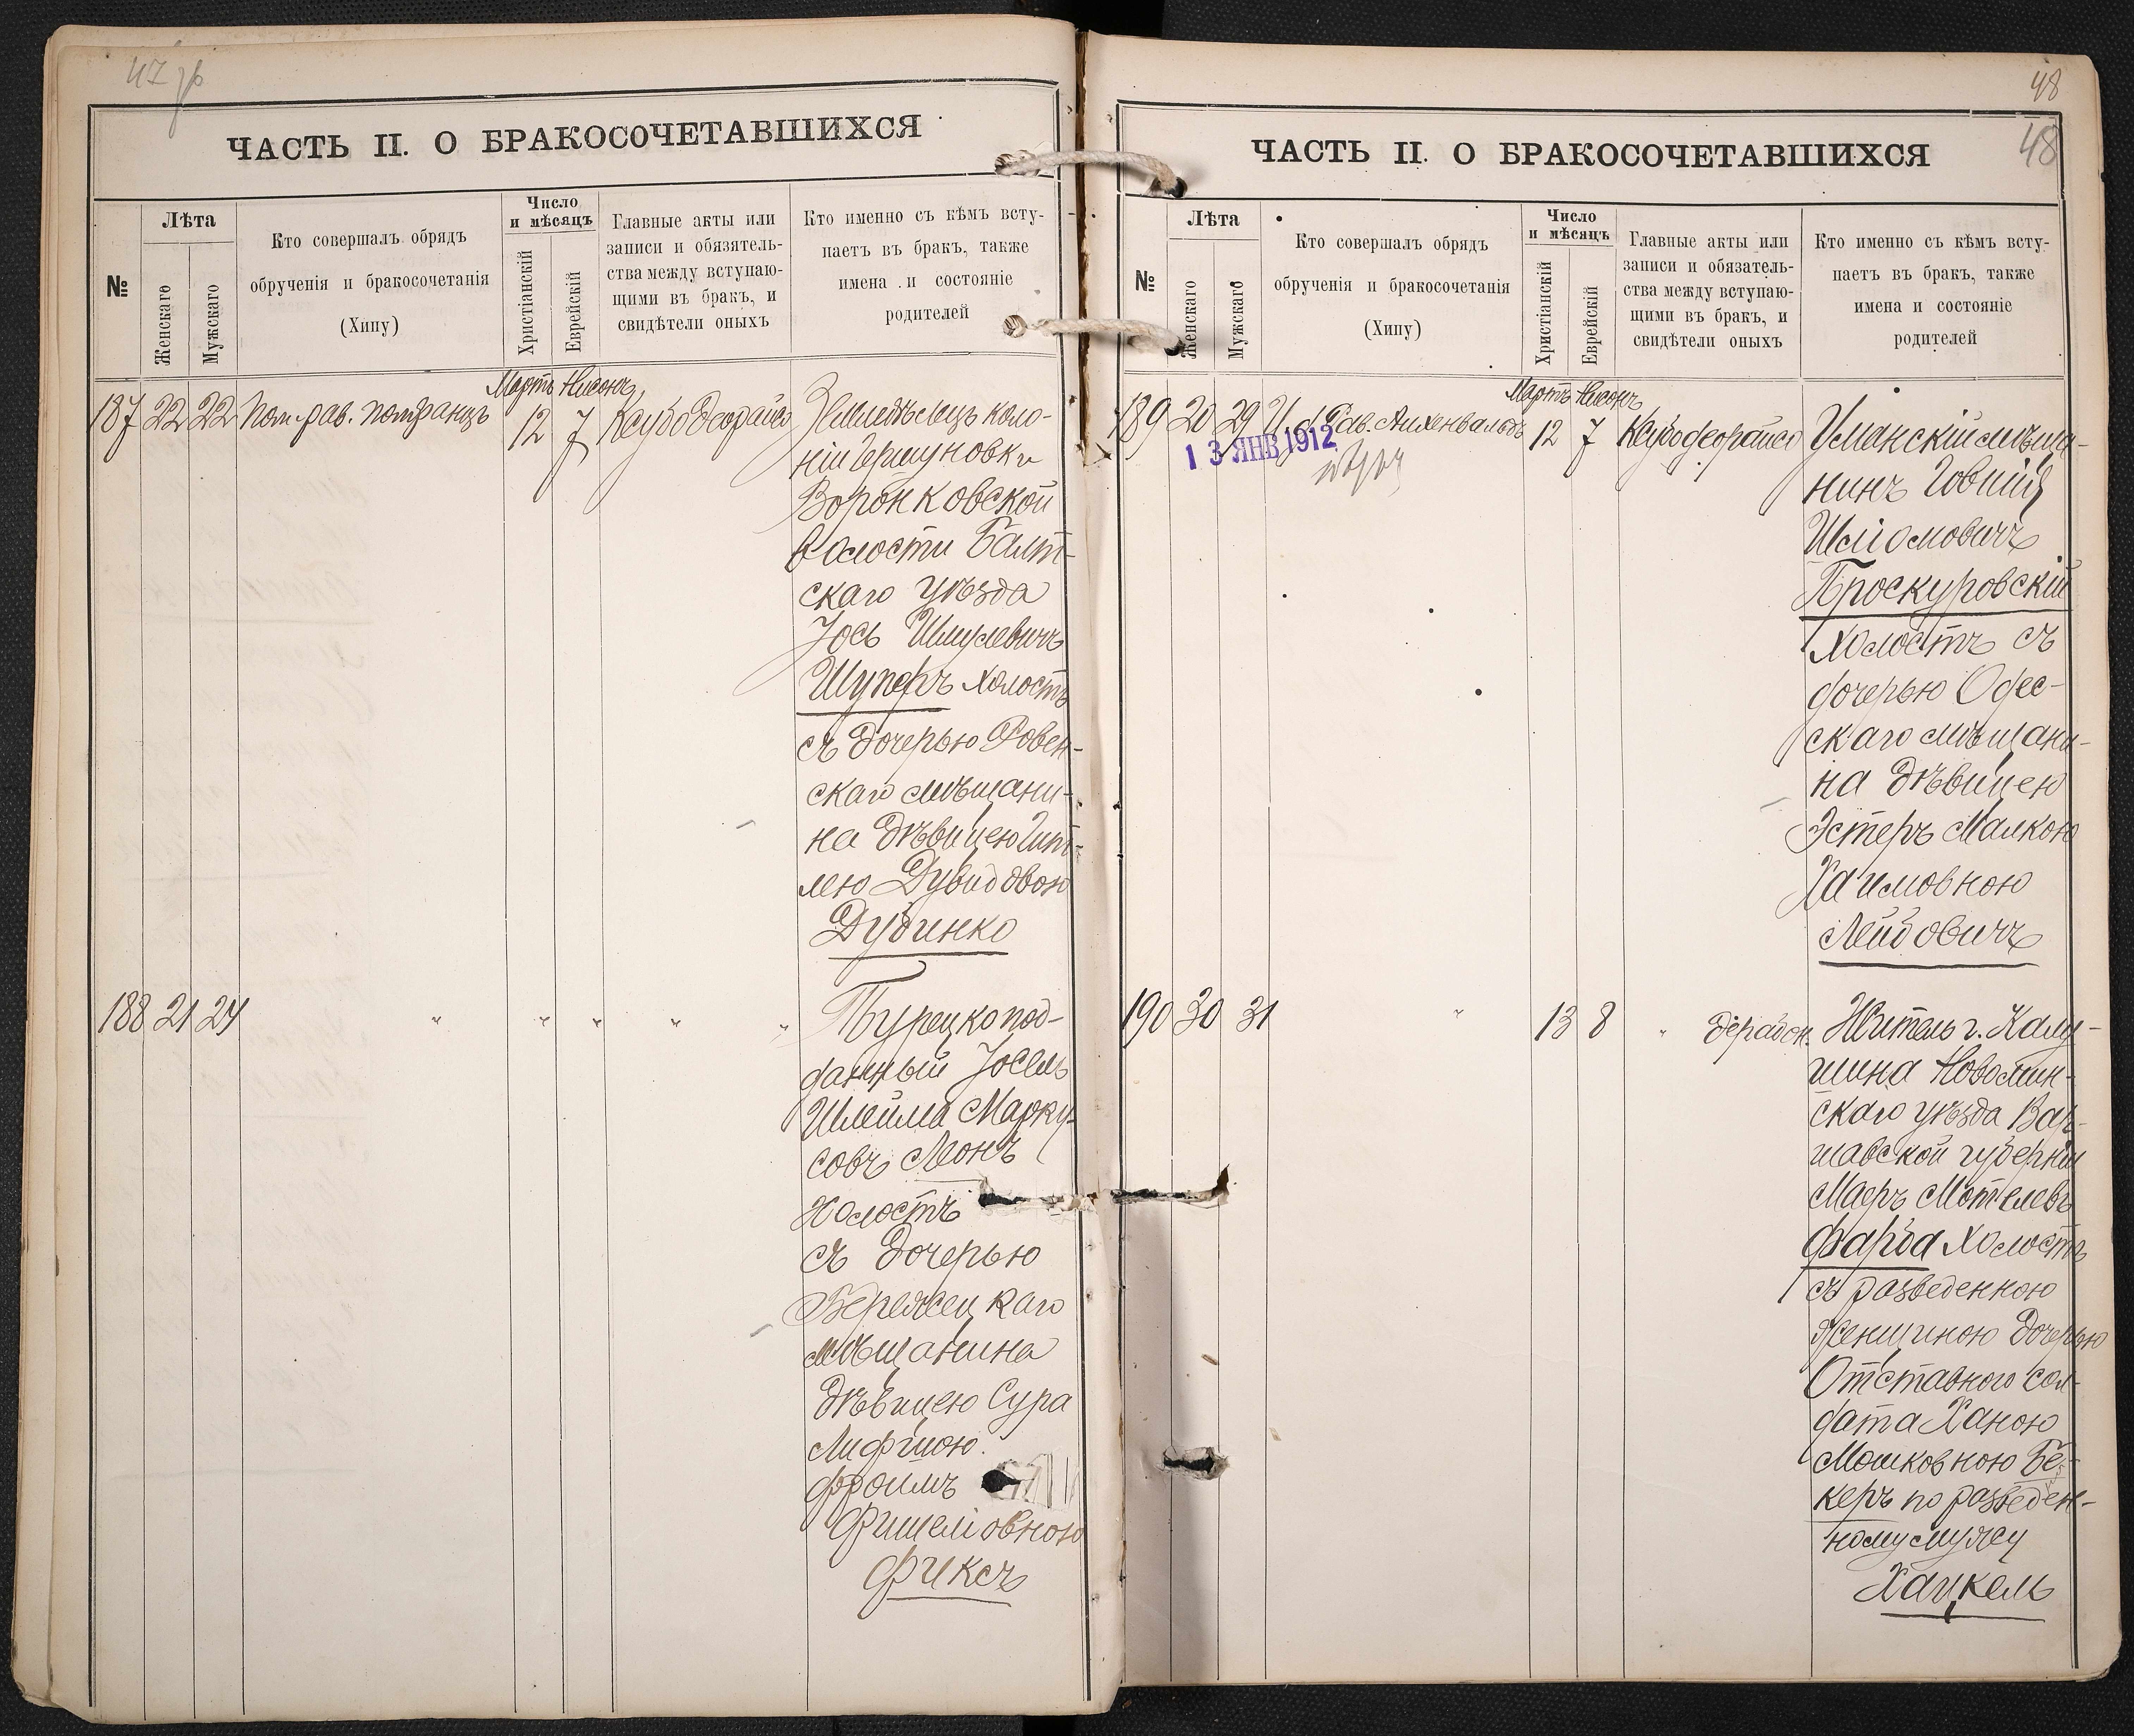 47 зв
ЧАСТЬ II. О БРАКОСОЧЕТАВШИХСЯ
№
Лѣта
Женскаго
Мужскаго
Кто совершалъ обрядъ
обрученія и бракосочетанія
(Хипу)
Число
и мѣсяцъ
Христіанскій
Еврейскій
Главные акты или
записи и обязятель-
ства между вступаю-
щими въ бракъ, и
свидѣтели оныхъ
Кто именно съ кѣмъ всту-
паетъ въ бракъ, также
имена и состояніе
родителей
Мартъ Нисонъ
187 22 22 Пом. рав. 12 7
Землѣделецъ коло-
ніи
Воронковской
волости Балт-
скаго уѣзда
Іось Шмулевичъ
Шуперъ холостъ
съ дочерью Ровен-
скаго мѣщани-
на дѣвицею
лею Дувидовою
Дубинко
188 21 24 " " " " "
Турецко под-
данный Іосель
Шлейма Марку-
совъ Леонъ
холостъ
съ дочерью
мѣщанина
дѣвицею Сура
Фроимъ
Фишеліовною
Фиксъ
48
48
ЧАСТЬ II. О БРАКОСОЧЕТАВШИХСЯ
№
Лѣта
Женскаго
Мужскаго
Кто совершалъ обрядъ
обрученія и бракосочетанія
(Хипу)
Число
и мѣсяцъ
Христіанскій
Еврейскій
Главные акты или
записи и обязатель-
ства между вступаю-
щими въ бракъ, и
свидѣтели оныхъ
Кто именно съ кѣмъ всту-
паетъ въ бракъ, также
имена и состояніе
родителей
Мартъ Нисонъ
189 20 29 И. д. Рав. Айхенвальдъ 12 7
13 ЯНВ 1912
Уманскій мѣща-
нинъ
Шліомовичъ
Проскуровскій
холостъ съ
дочерью Одес-
скаго мѣщани-
на дѣвицею
Эстеръ Малкою
Хаимовною
Лейбовичъ
190 30 31 " 13 8 "
Житель г. Калу-
шина Новомин-
скаго уѣзда Вар-
шавской губерніи
Маеръ Мотелевъ
Фарба холостъ
съ разведенною
женщиною дочерью
Отставного сол-
дата Ханою
Мошковною Бе-
керъ по разведен-
ному мужу
Хацкель